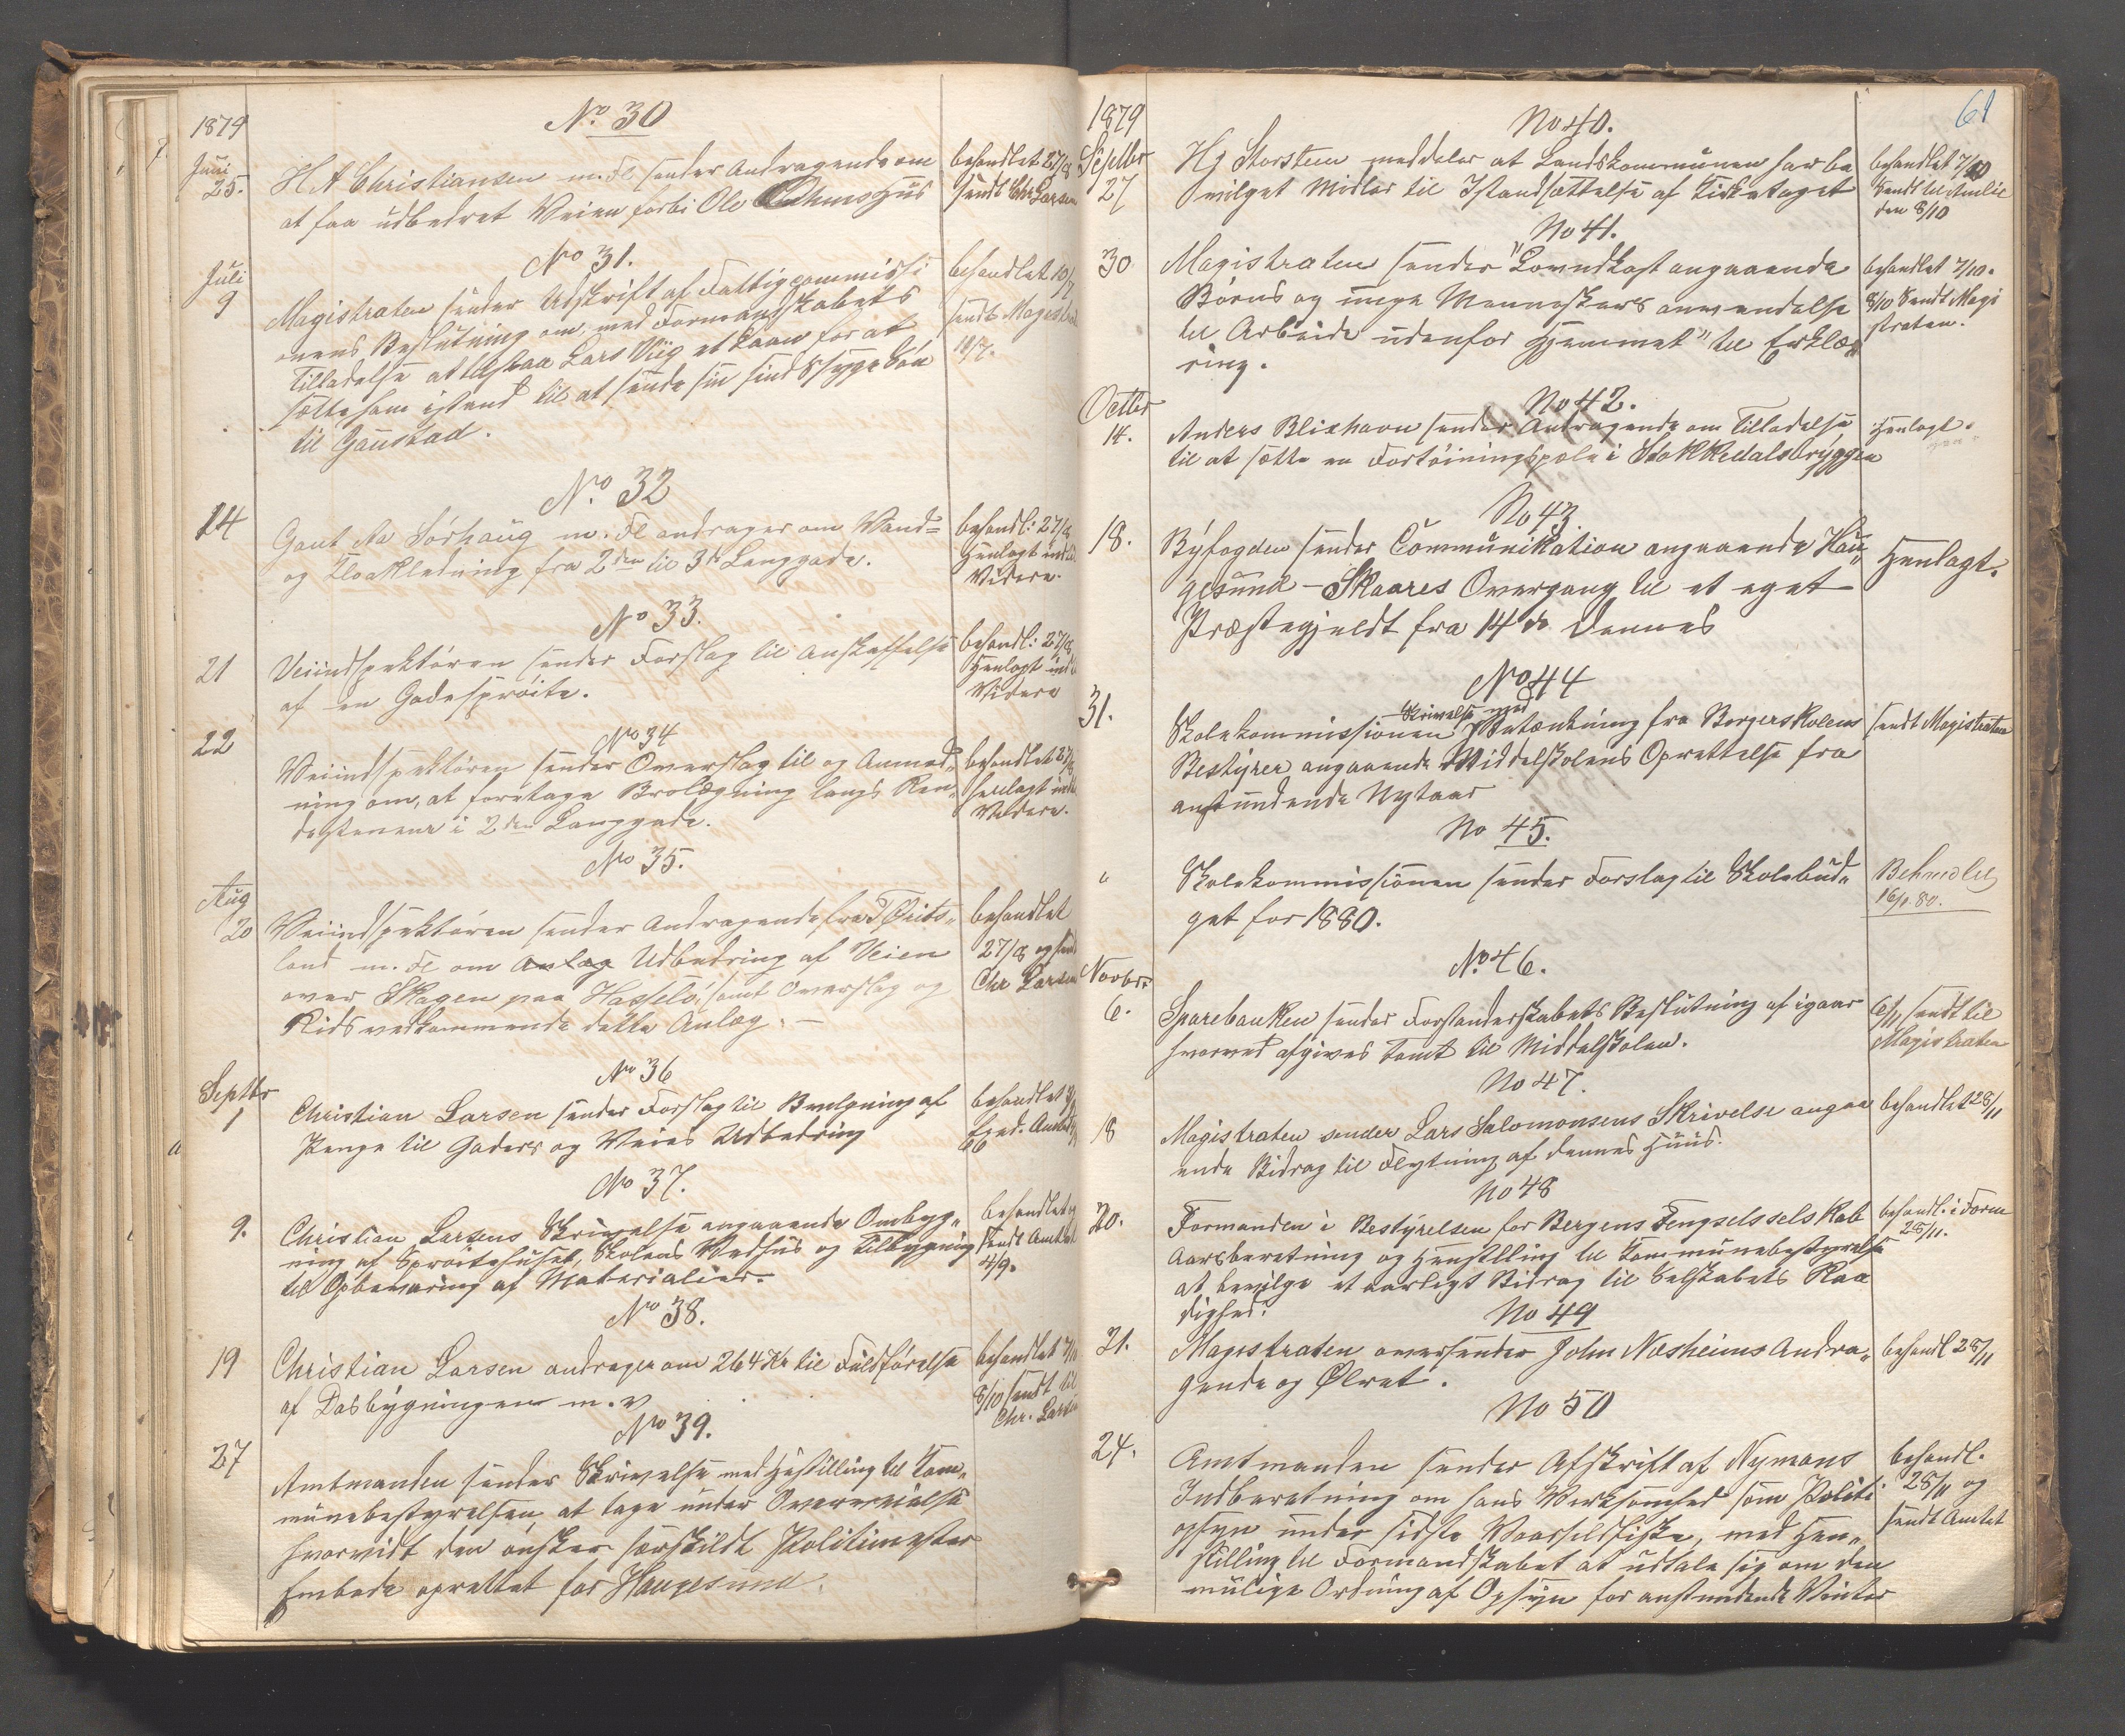 1879
No. 30
Juni
25.
H A Christiansen m. Fl. sender Andragende om
at faa udbedret Veien forbi Ole Huus
behandlet 27/8
sendt Chr Larsen
No 31.
Juli
9
Magistraten sender Udskrift af Fattigcommissi
onens Beslutning om, med Formandskabets
Tilladelse at tilstaa Lars Viig et Laan for at
sætte ham istand til at sende sin sindssyge Søn
til Gaustad.
behandlet 10/7
sendt Magistrat
10/7.
No. 32
14
Gaut Aa Sørhaug m. Fl andrager om Vand=
og Kloakledning fra 2den til 3die Langgade.
behandl: 27/8
Henlagt indtil
Videre.
No 33.
21
Veiindspektøren sender Forslag til Anskaffelse
af en Gadesprøite.
behandl: 27/8
Henlagt indtil
Videre
No 34
22
Veiindspektøren sender Overslag til og Anmod„
ning om, at foretage Brolægning langs Ren„
destenene i 2den Langgade.
behandlet 27/8
henlagt indtil
Videre.
No 35.
Aug
20
Veiindspektøren sender Andragende fra T Øvits„
land m. Fl om Anlæg Udbedring af Veien
over Skagen paa Hasselø, samt Overslag og
Rids vedkommende dette Anlæg. —
behandlet
27/8 og sendt
Chr Larsen
No 36
Septbr
1
Christian Larsen sender Forslag til Bevilgning af
Penge til Gaders og Veies Udbedring
behandlet
Exed. Amtet
No 37.
9.
Christian Larsens Skrivelse angaaende Ombyg„
ning af Sprøitehuset, Skolens Vedhus og Tilbygning
til Opbevaring af Materialier.
behandlet
sendt Amtet
4/9.
No 38.
19
Christian Larsen andrager om 264 Kr til Fuldførelse
af Dosbygningen m. v
behandlet 7/10
8/10 sendt til
Chr. Larsen
No 39.
27
Amtmanden sender Skrivelse med Hestilling til Kom„
munebestyrelsen, at tage under Overveielse
hvorvidt den ønsker særskildt Politimester
Embede oprettet for Haugesund.
61
1879
No 40.
Septbr
27
Hj Storsteen meddeler at Landskommunen har be
vilget Midler til Istandsættelse af Kirketaget
behandlet 7/10
Sendt til Amlie
den 8/10
No 41.
30
Magistraten sender "Lovudkast angaaende
Børns og unge Menneskers anvendelse
til Arbeide udenfor Hjemmet" til Erklæ„
ring.
behandlet 7/10.
8/10 Sendt Magi
straten.
No 42.
Octbr
14.
Anders Blixhavn sender Andragende om Tilladelse
til at sætte en Fortøiningspæle i Stokkedalsbryggen
Henlagt.
No 43
18.
Byfogden sender Communikation angaaende Hau„
gesund - Skaares Overgang til et eget
Præstegjeldt fra 14de dennes
Henlagt.
No 44
31.
Skrivelse med
Skolekommissionen Betænkning fra Borgerskolens
Bestyrer angaaende Middelskolens Oprettelse fra
anstundende Nytaar
sendt Magistraten
No 45.
"
Skolekommissionen sender Forslag til Skolebud„
get for 1880.
Behandlet
16/1.80.
No. 46.
Novbr.
6.
Sparebanken sender Forstanderskabets Beslutning af igaar
hvorved afgives Tomt til Middelskolen.
6/11 sendt til
Magistraten
No 47.
18
Magistraten sender Lars Salomonsens Skrivelse angaa
ende Bidrag til Flytning af dennes Huus.
behandlet 28/11
No 48
20.
Formanden i Bestyrelsen for Bergens Fengselsselskab
Aarsberetning og Henstilling til Kommunebestyrelse
at bevilge et aarligt Bidrag til Selskabets Raa
dighed.
behandl. i Form
28/11.
No 49
21.
Magistraten oversender John Næsheims Andra„
gende og Ølret.
behandl 28/11
No 50
24.
Amtmanden sender Afskrift af Nymans
Indberetning om hans Virksomhed som Politi
opsyn under sidste Vaarsildfiske, med Hen„
stilling til Formandskabet at udtale sig om den
mulige Ordning af Opsyn for anstundende Vinter
behandl.
28/11 og
sendt Amtet